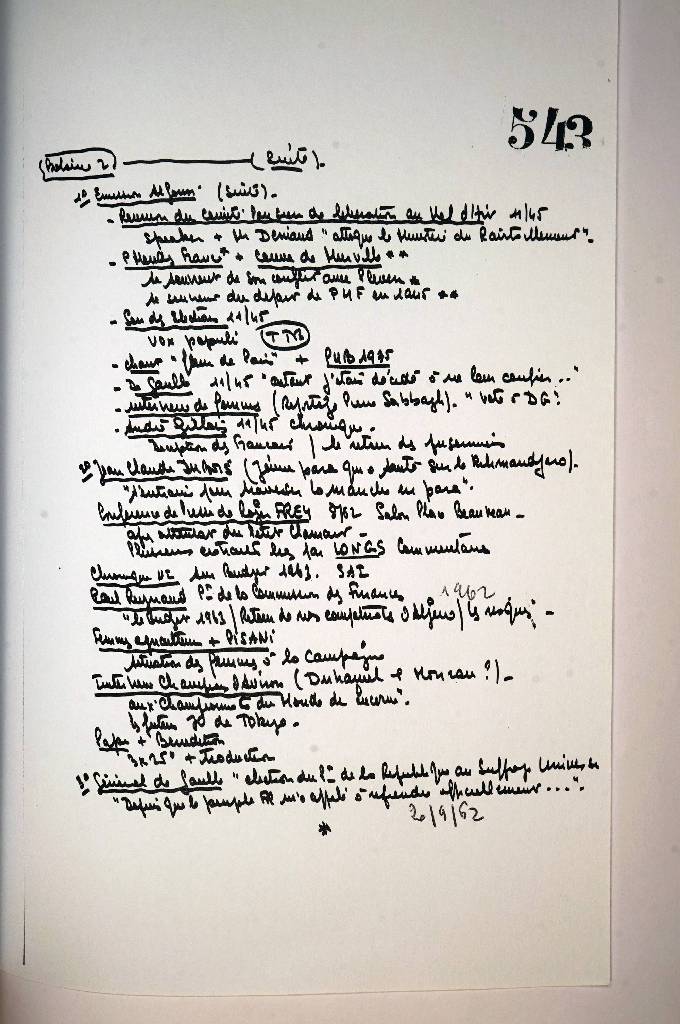 543
(Suite).
1° Emission (Suite).
- Reunion du Comité Parisien de liberation au Vel d'Hiv 11/45
Speaker + Mr Deniaud "attaque le Ministre du Ravitaillement".
- P Mendes France* + Comte de **
le souvenir de son conflit avec Pleven *
le du depart de PMF en 1945 **
- Son des Elections 11/45
vox populi (TTB)
- Chant "fleur de Paris" + PUB 1935
- De Gaulle 11/45 "autant j'étais décidé à ne leur confier..."
- interview de femmes (Reportage Pierre Sabbagh). "vote à DG!
- André Gillois 11/45 chronique.
des Francais / le retour des prisonniers
2° Jean Claude DUBOIS (jeune para qui a sauté sur le Kilimandjaro).
pour traverser la manche en para".
Conference de Presse de Roger FREY 9/62 Salon Place Beauveau -
après attentat du Petit Clamart -
Plusieurs extraits lies par LONGS Commentaires
Chronique sur Budget 1963.
Paul Reynaud Pt de la Commission des Finances 1962
"le budget 1963 / Retour de nos compatriotes d'Algerie / les risques" -
Femmes agriculteurs + PISANI
situation des femmes à la Campagne
Interview Champions d'Aviron (Duhamel et Monceau ?) -
aux "Championnats du Monde de Lucerne".
les futurs JO de Tokyo -
Pape + Benediction
+ Traduction
3° Général de Gaulle "election du Pt de la Republique au Suffrage Universel
"Depuis que le peuple FR m'a appelé à officiellement ...".
20/9/62
*